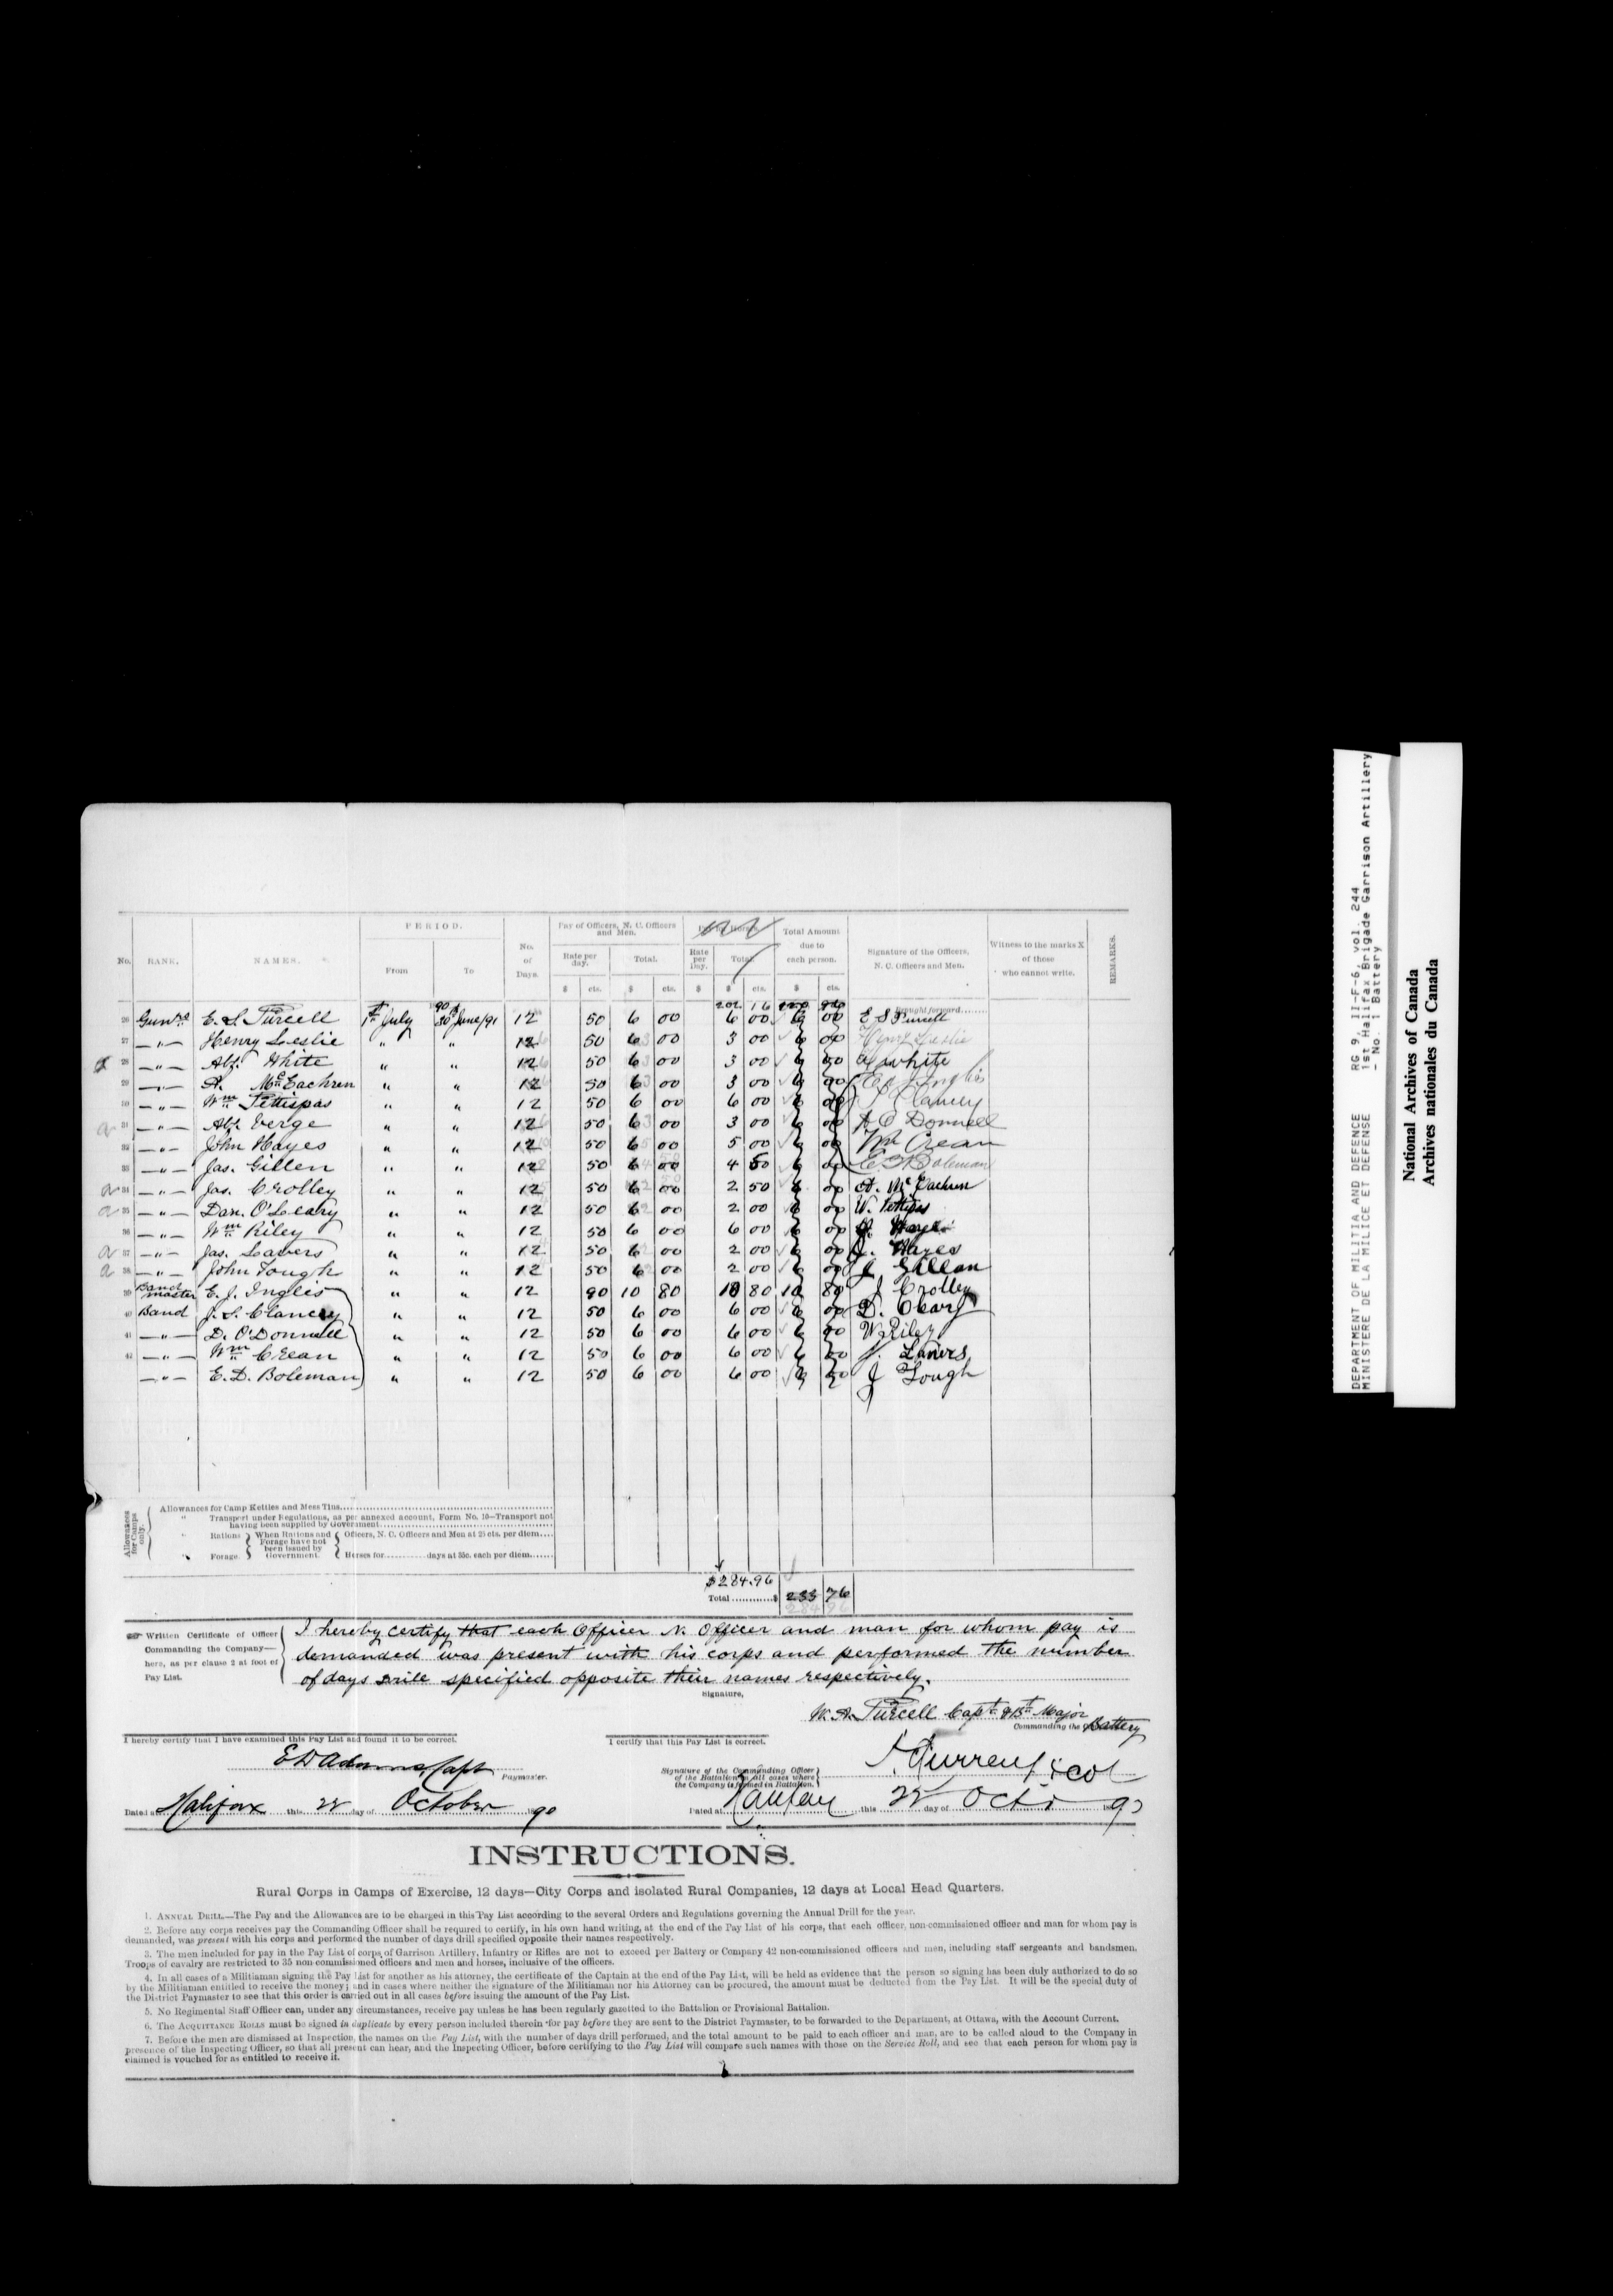 PERIOD.
Pay of Officers, N. C. Officers and Men.
Total Amount due to each person.
No.
RANK.
NAMES.
From
To
No. of Days.
Rate per day.
Total.
Rate per Day.
Total.
Signature of the Officers, N. C. Officers and Men.
Witness to the marks X of those who cannot write.
REMARKS.
$ cts. $ cts. $ $ cts. $ cts.
90 202 16 Brought forward
26 Gunrs E. S. Purcell 1st July 30 June/91 12 50 6 00 6 00 6 00 E S Purcell
27 —"— Henry Leslie " " 12 50 6 00 3 00 6 00 Henry Leslie
a 28 —"— Abr. White " " 12 50 6 00 3 00 6 00 A White
29 —"— A. McEachren " " 12 50 6 00 3 00 6 00
30 —"— Wm Pettispas " " 12 50 6 00 6 00 6 00 Clancy
a 31 —"— Abr Verge " " 12 50 6 00 3 00 6 00 O Donnell
32 —"— John Hayes " " 12 50 6 00 5 00 6 00 Wm Crean
33 —"— Jas. Gillen " " 12 50 6 00 4 50 6 00 E D Boleman
a 34 —"— Jas. Crolley " " 12 50 6 00 2 50 6 00 A. McEachren
a 35 —"— Dan. O'Leary " " 12 50 6 00 2 00 6 00 W. Pettipas
36 —"— Wm Riley " " 12 50 6 00 6 00 6 00
a 37 —"— Jas. Lavers " " 12 50 6 00 2 00 6 00 J. Hayes
a 38 —"— John Tough " " 12 50 6 00 2 00 6 00 J Gillan
39 Band master E. J. Inglis " " 12 90 10 80 10 80 10 80 J Crolley
40 Band J. S. Clancey " " 12 50 6 00 6 00 6 00 D. Oleary
41 —"— D. O'Donnell " " 12 50 6 00 6 00 6 00 W Riley
42 —"— Wm Crean " " 12 50 6 00 6 00 6 00 J. Lavers
—"— E. D. Boleman " " 12 50 6 00 6 00 6 00 J Tough
Allowances for Camps only.
Allowances for Camp Kettles and Mess Tins
" Transport under Regulations, as per annexed account, Form No. 10—Transport not having been supplied by Government
" Rations When Rations and Forage have not been issued by Government. Officers, N. C. Officers and Men at 25 cts. per diem
" Forage Horses for days at 55c. each per diem
$284.96
Total $ 233 76
284 96
Written Certificate of Officer Commanding the Company—here, as per clause 2 at foot of Pay List.
I hereby certify that each Officer N. Officer and man for whom pay is
demanded was present with his corps and performed the number
of days drill specified opposite their names respectively.
Signature,
W. A. Purcell Capt & Bt Major
Commanding the Battery
I hereby certify that I have examined this Pay List and found it to be correct.
I certify that this Pay List is correct.
E D Adams, Capt
Paymaster.
Signature of the Commanding Officer of the Battalion in all cases where the Company is formed in Battalion.
Dated at Halifax this 22 day of October 1890
Dated at Halifax this 22 day of Octr 1890
INSTRUCTIONS.
Rural Corps in Camps of Exercise, 12 days—City Corps and isolated Rural Companies, 12 days at Local Head Quarters.
1. ANNUAL DRILL—The Pay and the Allowances are to be charged in this Pay List according to the several Orders and Regulations governing the Annual Drill for the year.
2. Before any corps receives pay the Commanding Officer shall be required to certify, in his own hand writing, at the end of the Pay List of his corps, that each officer, non-commissioned officer and man for whom pay is
demanded, was present with his corps and performed the number of days drill specified opposite their names respectively.
3. The men included for pay in the Pay List of corps of Garrison Artillery, Infantry or Rifles are not to exceed per Battery or Company 42 non-commissioned officers and men, including staff sergeants and bandsmen.
Troops of cavalry are restricted to 35 non-commissioned officers and men and horses, inclusive of the officers.
4. In all cases of a Militiaman signing the Pay List for another as his attorney, the certificate of the Captain at the end of the Pay List, will be held as evidence that the person so signing has been duly authorized to do so
by the Militiaman entitled to receive the money; and in cases where neither the signature of the Militiaman nor his Attorney can be procured, the amount must be deducted from the Pay List. It will be the special duty of
the District Paymaster to see that this order is carried out in all cases before issuing the amount of the Pay List.
5. No Regimental Staff Officer can, under any circumstances, receive pay unless he has been regularly gazetted to the Battalion or Provisional Battalion.
6. The ACQUITTANCE ROLLS must be signed in duplicate by every person included therein for pay before they are sent to the District Paymaster, to be forwarded to the Department, at Ottawa, with the Account Current.
7. Before the men are dismissed at Inspection, the names on the Pay List, with the number of days drill performed, and the total amount to be paid to each officer and man, are to be called aloud to the Company in
presence of the Inspecting Officer, so that all present can hear, and the Inspecting Officer, before certifying to the Pay List will compare such names with those on the Service Roll, and see that each person for whom pay is
claimed is vouched for as entitled to receive it.
DEPARTMENT OF MILITIA AND DEFENCE RG 9, II-F-6, vol. 244
MINISTERE DE LA MILICE ET DEFENSE 1st Halifax Brigade Garrison Artillery
- No. 1 Battery
National Archives of Canada
Archives nationales du Canada